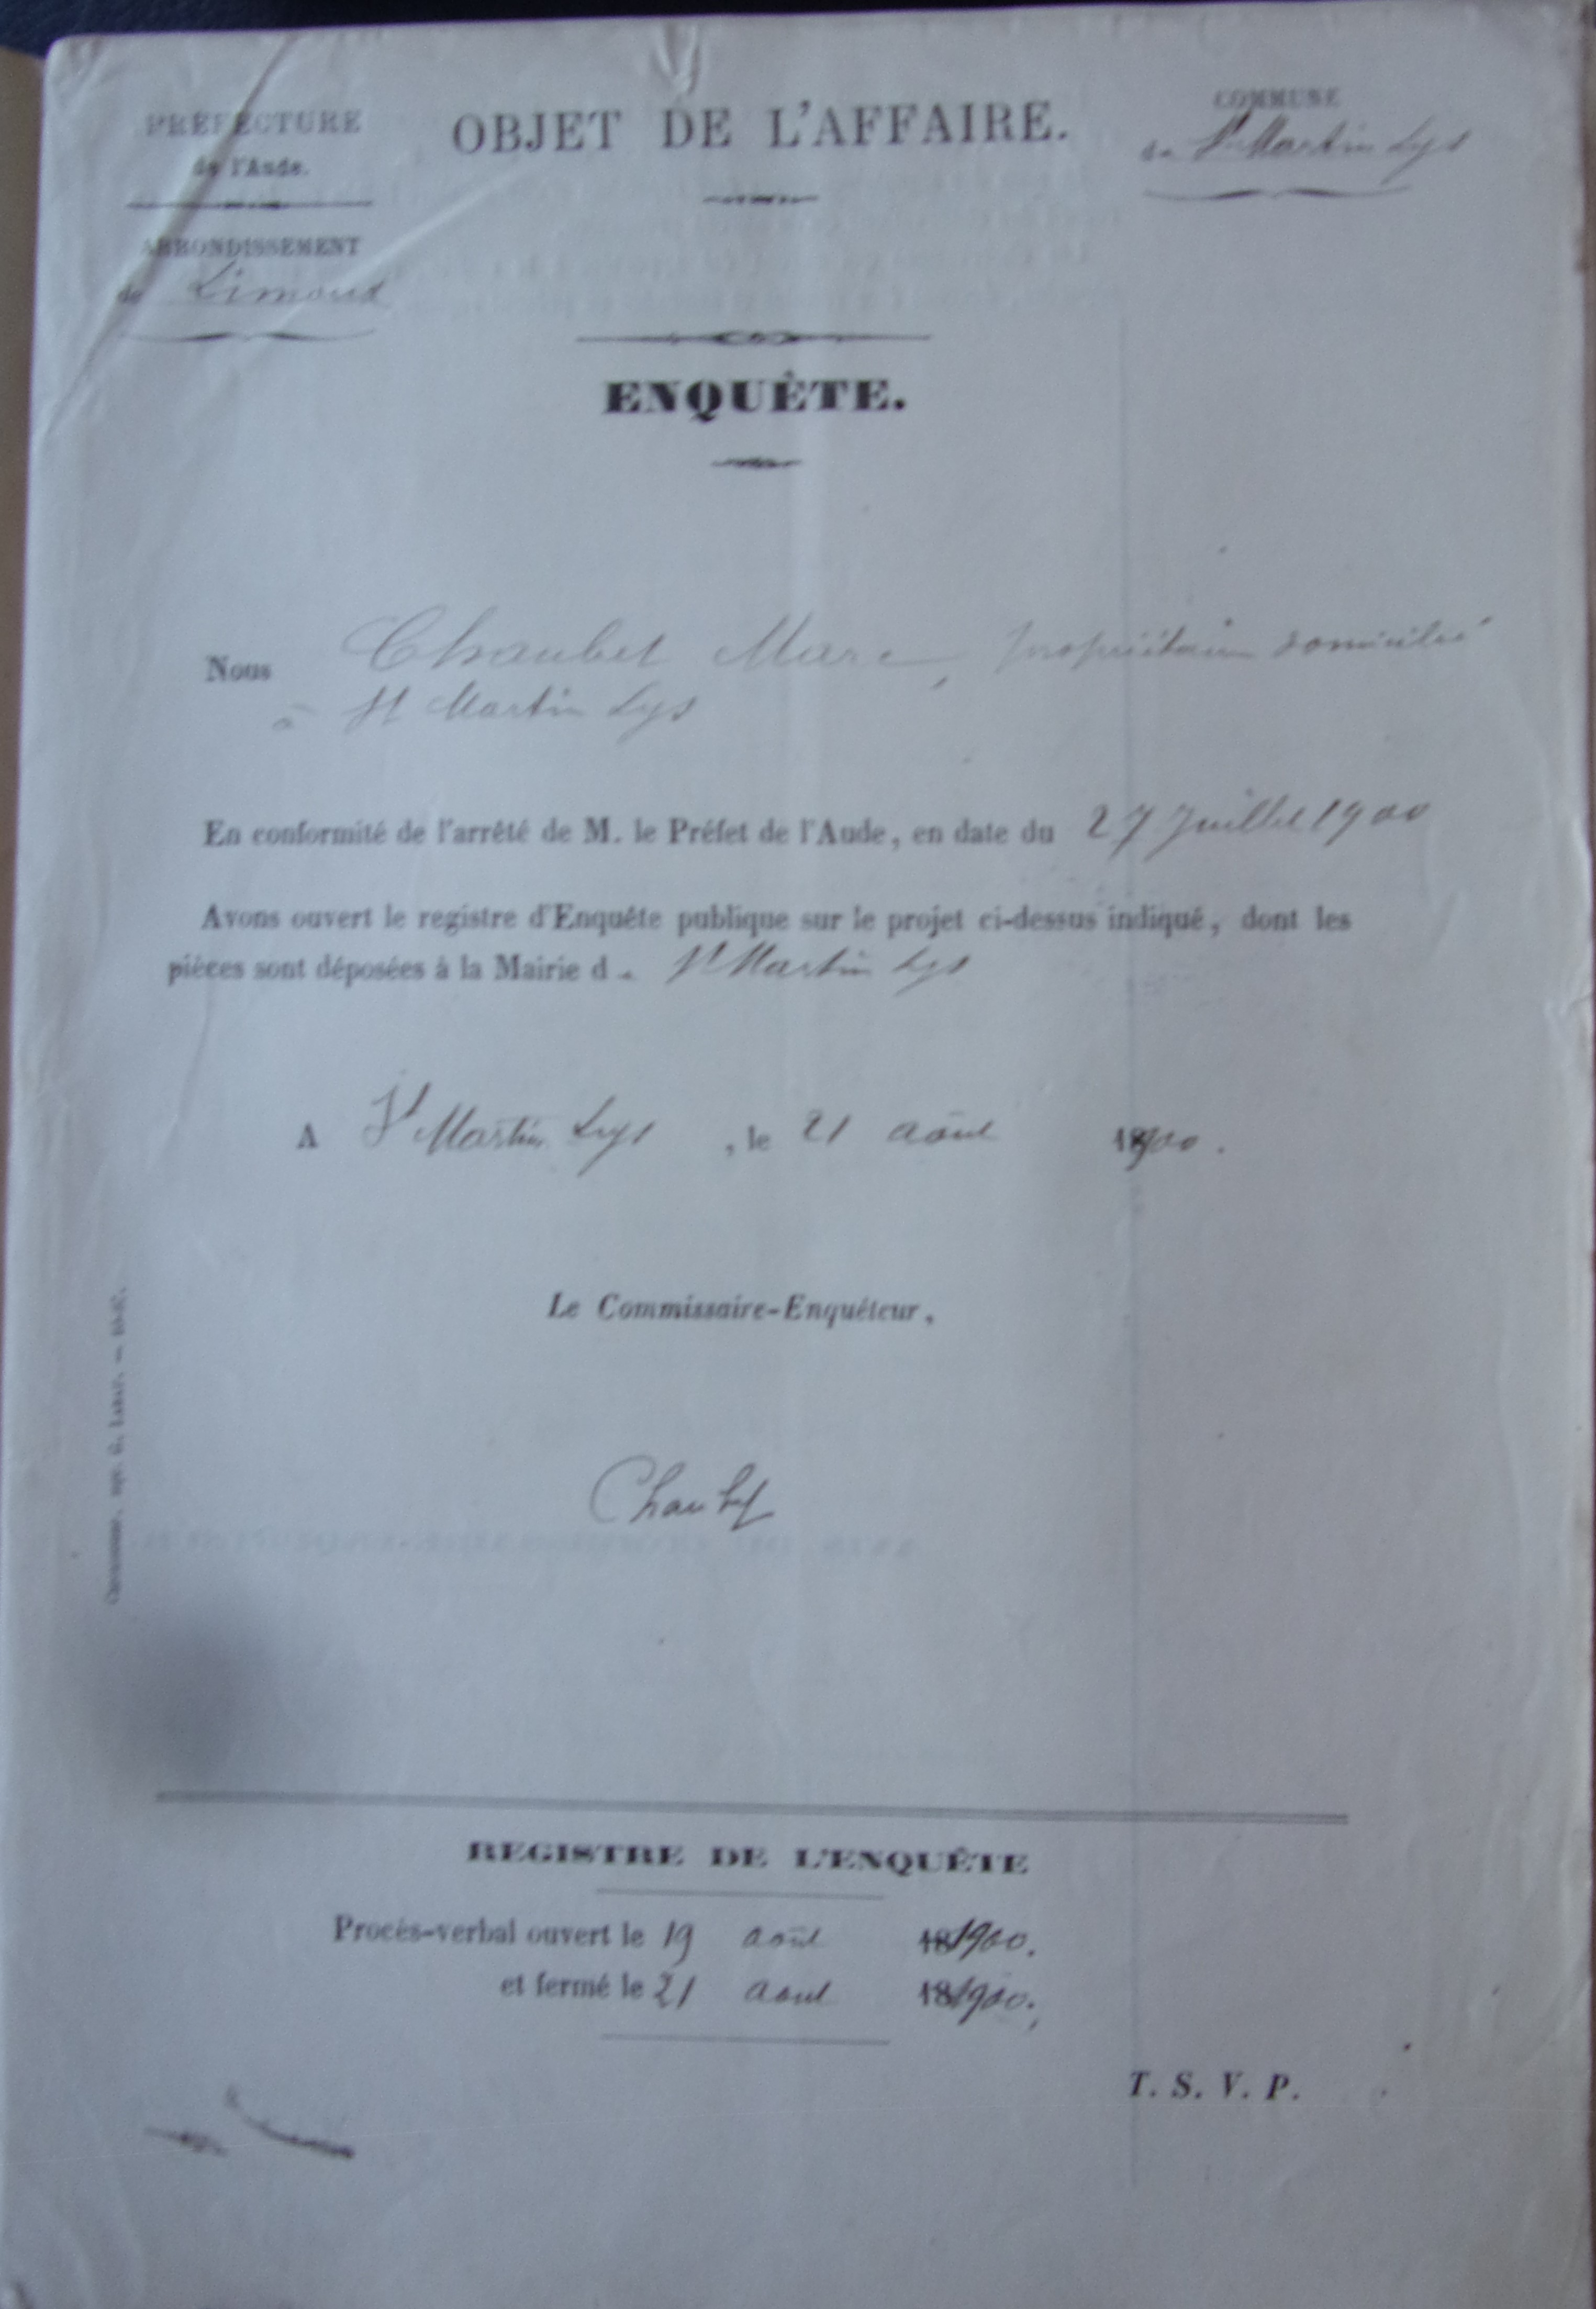 PRÉFECTURE
de l'Aude.
ARRONDISSEMENT
de Limoux
OBJET DE L'AFFAIRE.
COMMUNE
de St Martin Lys
ENQUÊTE.
Nous Chaubet Marc, propriétaire domicilié
à St Martin Lys
En conformité de l'arrêté de M. le Préfet de l'Aude, en date du 27 Juillet 1900
Avons ouvert le registre d'Enquête publique sur le projet ci-dessus indiqué, dont les
pièces sont déposées à la Mairie de St Martin Lys
A St Martin Lys, le 21 août 1900.
Le Commissaire-Enquêteur,
Chaubet
REGISTRE DE L'ENQUÊTE
Procès-verbal ouvert le 19 août 181900.
et fermé le 21 aout 181900.
T. S. V. P.